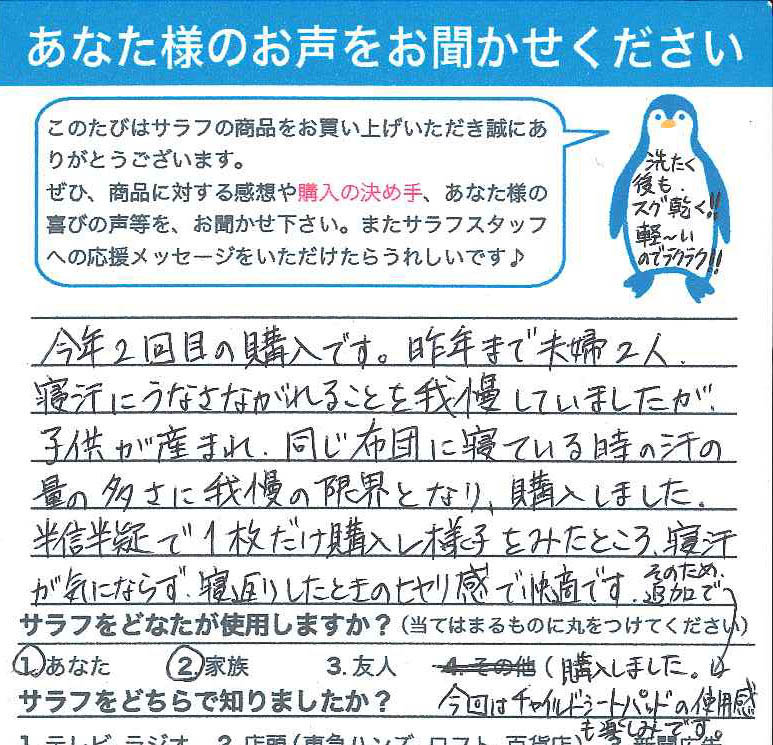 あなた様のお声をお聞かせください
このたびはサラフの商品をお買い上げいただき誠にあ
りがとうございます。
ぜひ、商品に対する感想や購入の決め手、あなた様の
喜びの声等を、お聞かせ下さい。またサラフスタッフ
への応援メッセージをいただけたらうれしいです♪
洗たく
後も、
スグ乾く!!
軽〜い
のでラクラク!!
今年2回目の購入です。昨年まで夫婦2人、
寝汗にうなさながれることを我慢していましたが、
子供が産まれ、同じ布団に寝ている時の汗の
量の多さに我慢の限界となり、購入しました。
半信半疑で1枚だけ購入し様子をみたところ、寝汗
が気にならず、寝返りしたときのヒヤリ感で快適です。そのため、
追加で
サラフをどなたが使用しますか？(当てはまるものに丸をつけてください)
1. あなた 2. 家族 3. 友人 4. その他 (購入しました。
サラフをどちらで知りましたか？ 今回はチャイルドシートパッドの使用感
も楽しみです。
1. テレビ・ラジオ 2. 店頭(東急ハンズ・ロフト・百貨店)